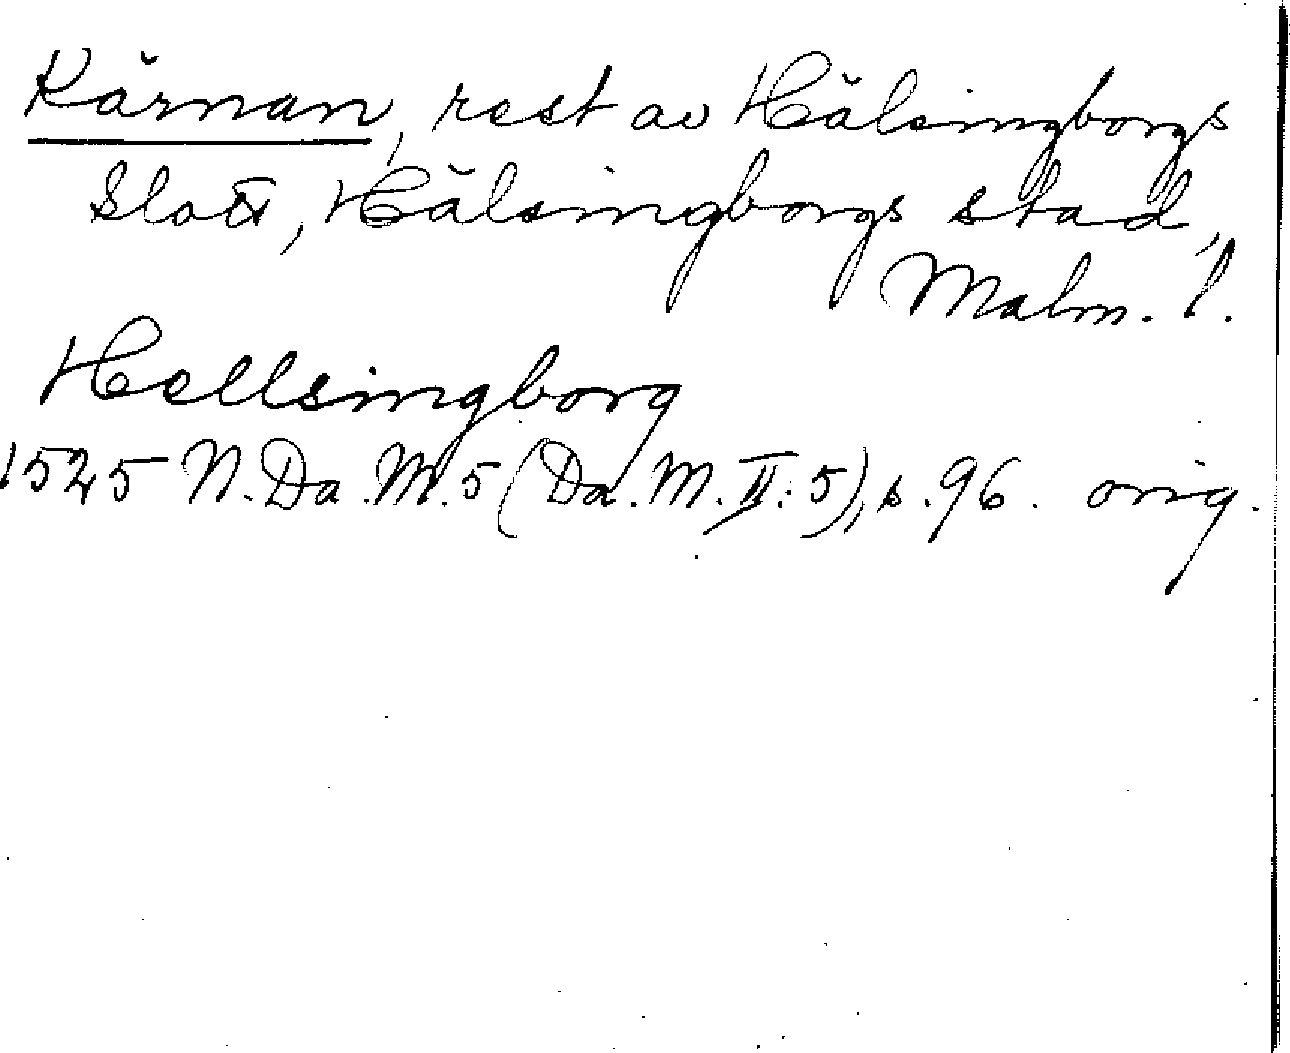 Kärnan, rest av Hälsingborgs
slott, Hälsingborgs stad,
Malm. l.
Hellsingborg
1525 N. Da. M. 5 (Da. M. II: 5), s. 96. orig.